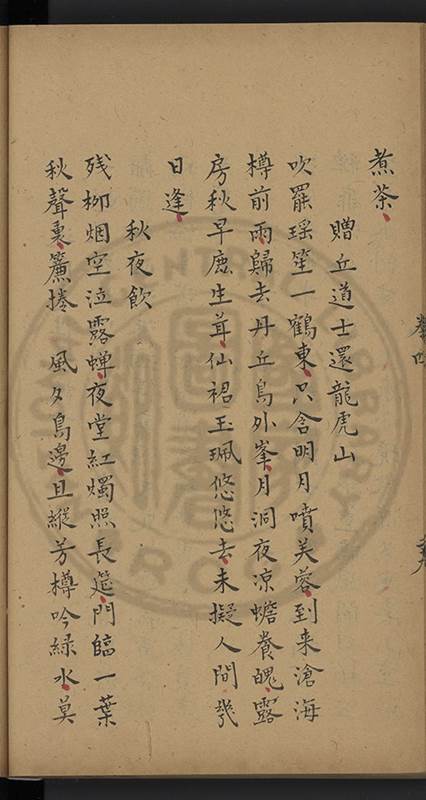 煮茶
贈丘道士還龍虎山
吹罷瑤笙一鶴東只含明月噴芙蓉到来滄海
樽前雨歸去丹丘鳥外峯月洞夜凉蟾養魄露
房秋早鹿生茸仙裙玉珮悠悠去未擬人間幾
日逢
秋夜飲
残柳烟空泣露蟬夜堂紅燭照長筵門臨一葉
秋聲裏簾捲 風夕鳥邊且縱芳樽吟緑水莫